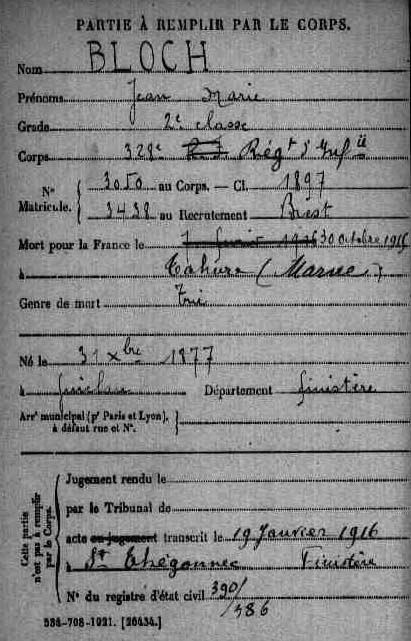 PARTIE À REMPLIR PAR LE CORPS.
Nom BLOCH
Prénoms Jean Marie
Grade 2e classe
Corps 328e R. I. Régt d'Infie
N° 3050 au Corps. — Cl. 1897
Matricule. 3438 au Recrutement Brest
Mort pour la France le 30 octobre 1915
à Tahure (Marne)
Genre de mort Tué
Né le 31 Xbre 1877
à Guiclan Département Finistère
Arrt municipal (pr Paris et Lyon),
à défaut rue et N°.
Cette partie n'est pas à remplir par le Corps.
Jugement rendu le
par le Tribunal de
acte ou jugement transcrit le 19 Janvier 1916
à St Thégonnec Finistère
N° du registre d'état civil 390/
/386
538-708-1921. [26434.]